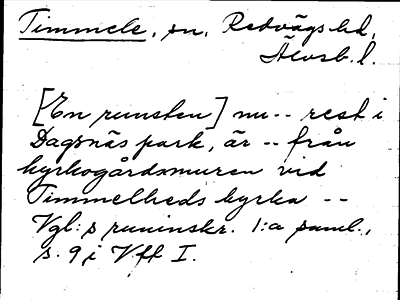 Timmele, sn, Redvägs hd,
Älvsb. l.
[En runsten] nu -- rest i
Dagsnäs park, är -- från
kyrkogårdsmuren vid
Timmelheds kyrka --
Vgl:s runinskr. 1:a saml.,
s. 9 i Vff I.